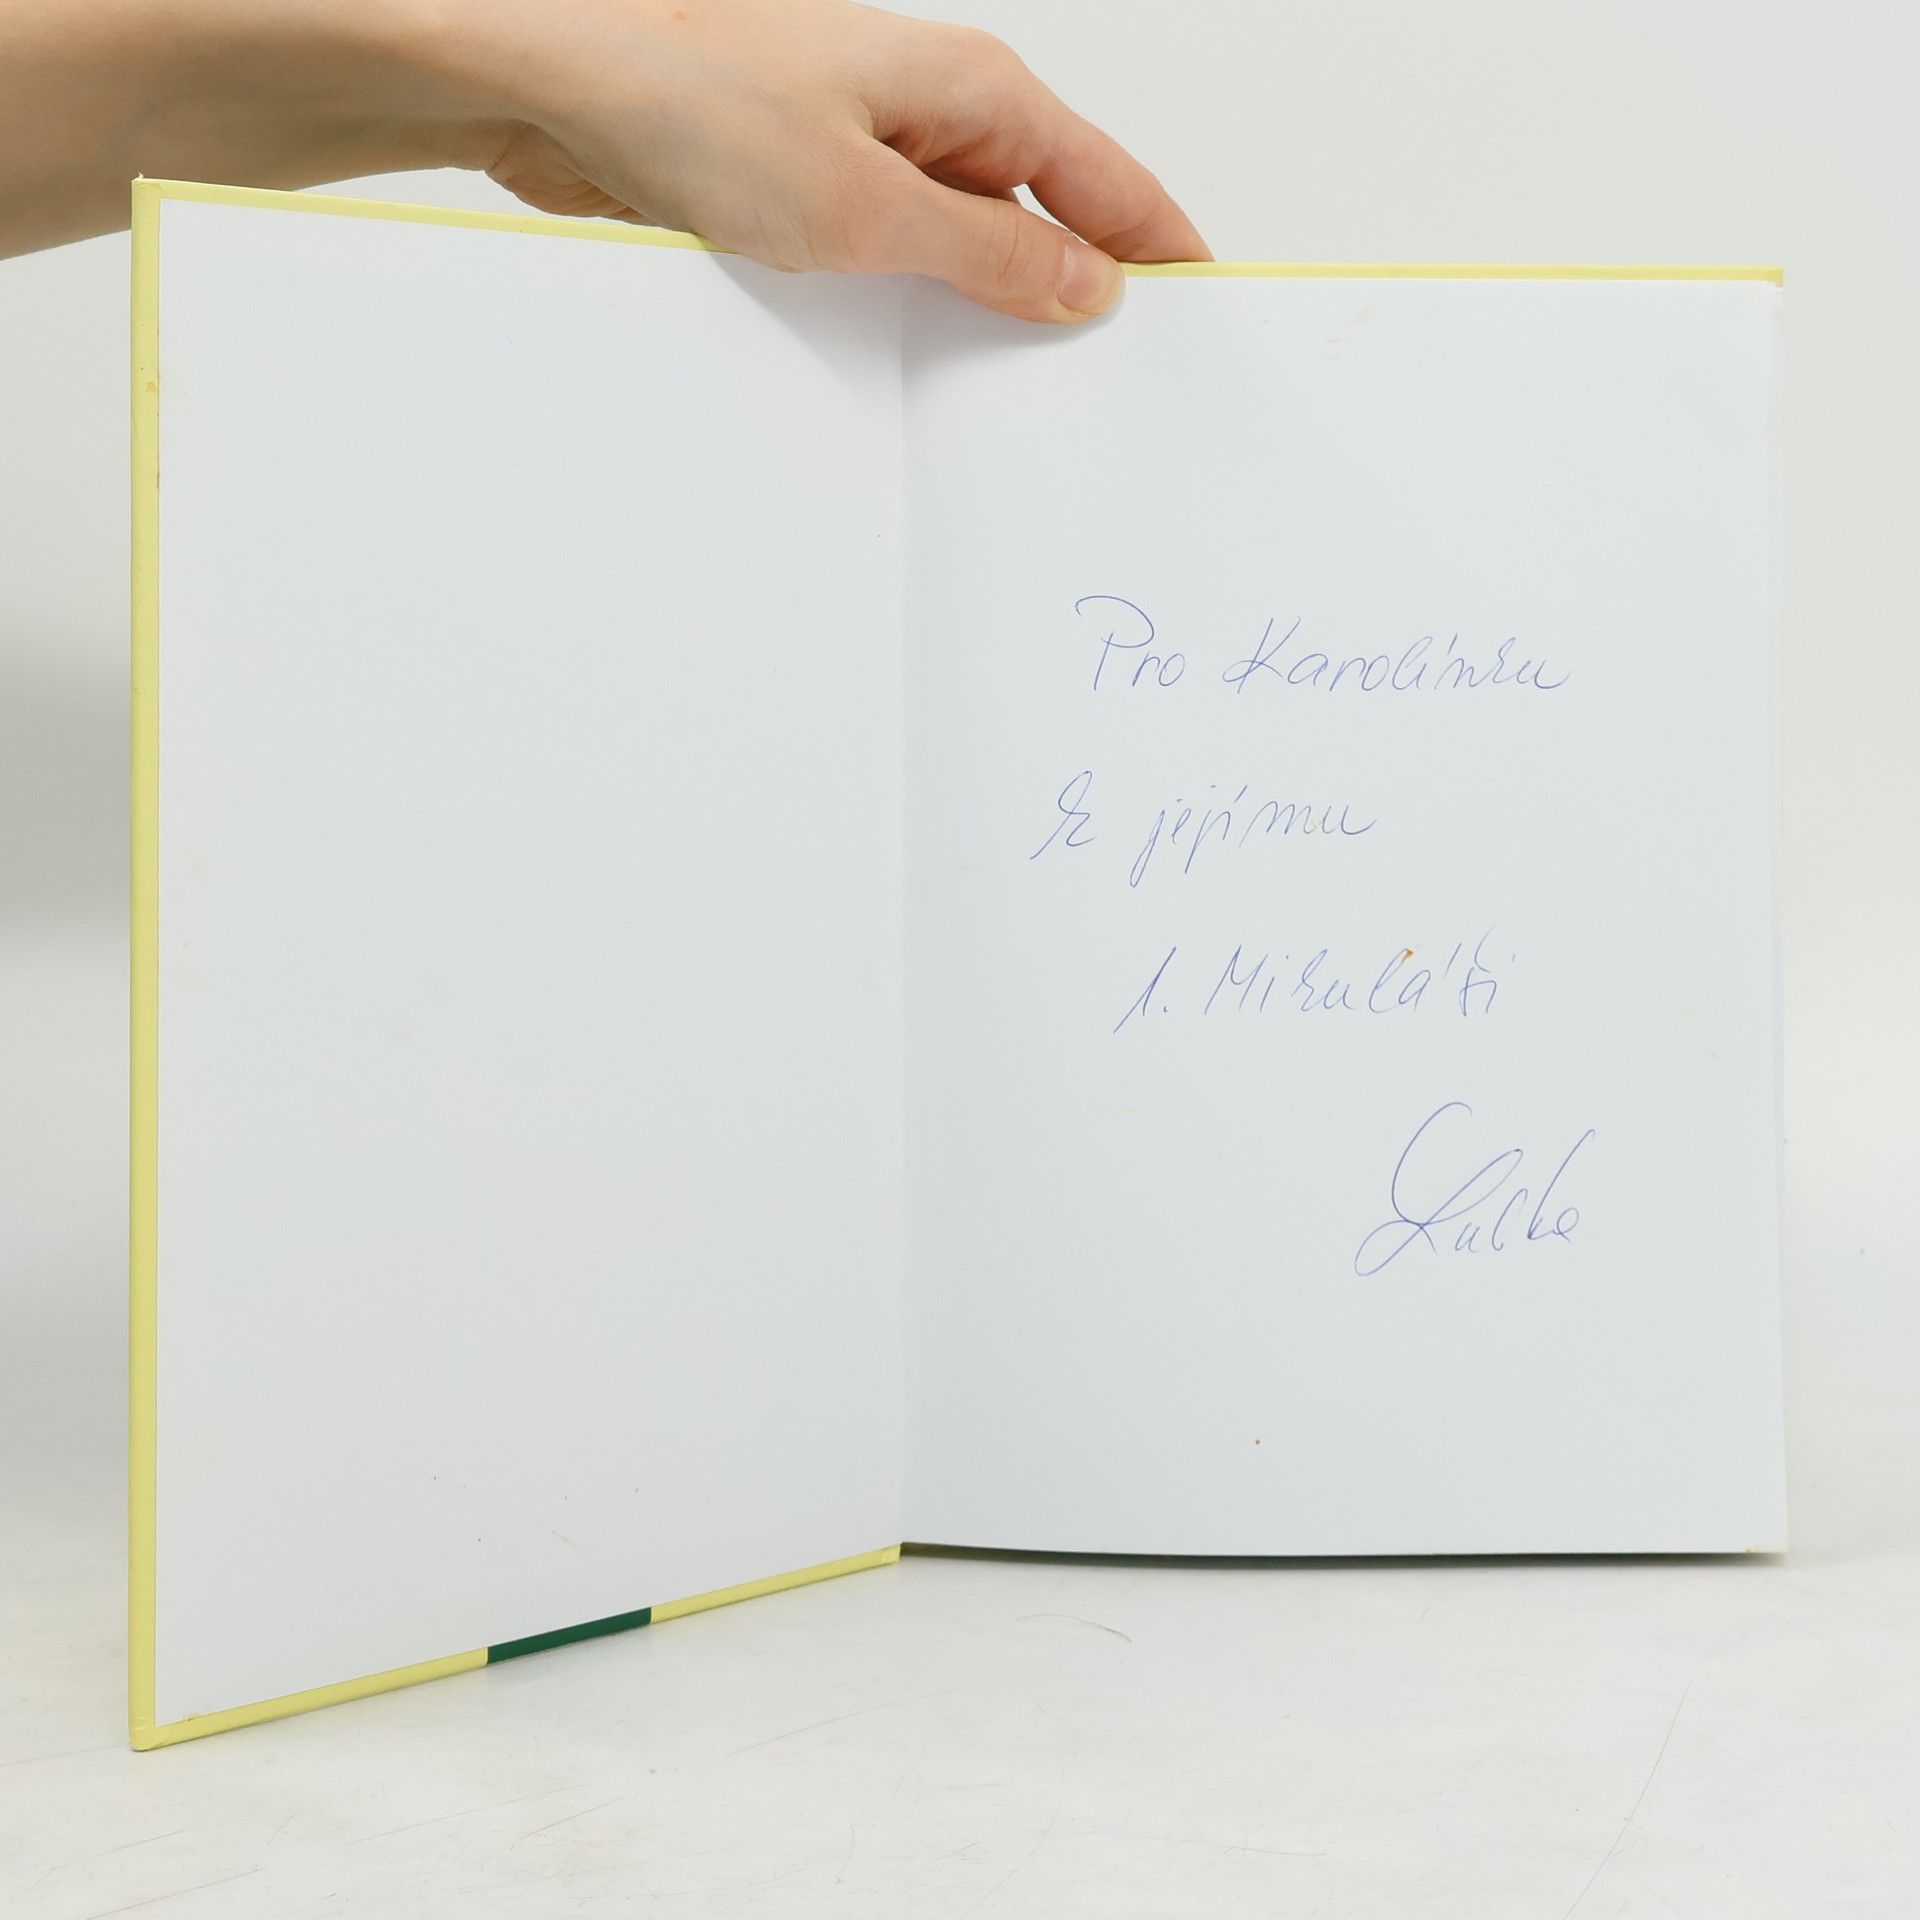 Pro Karolínku
k jejímu
1. Mikuláši
Lucka